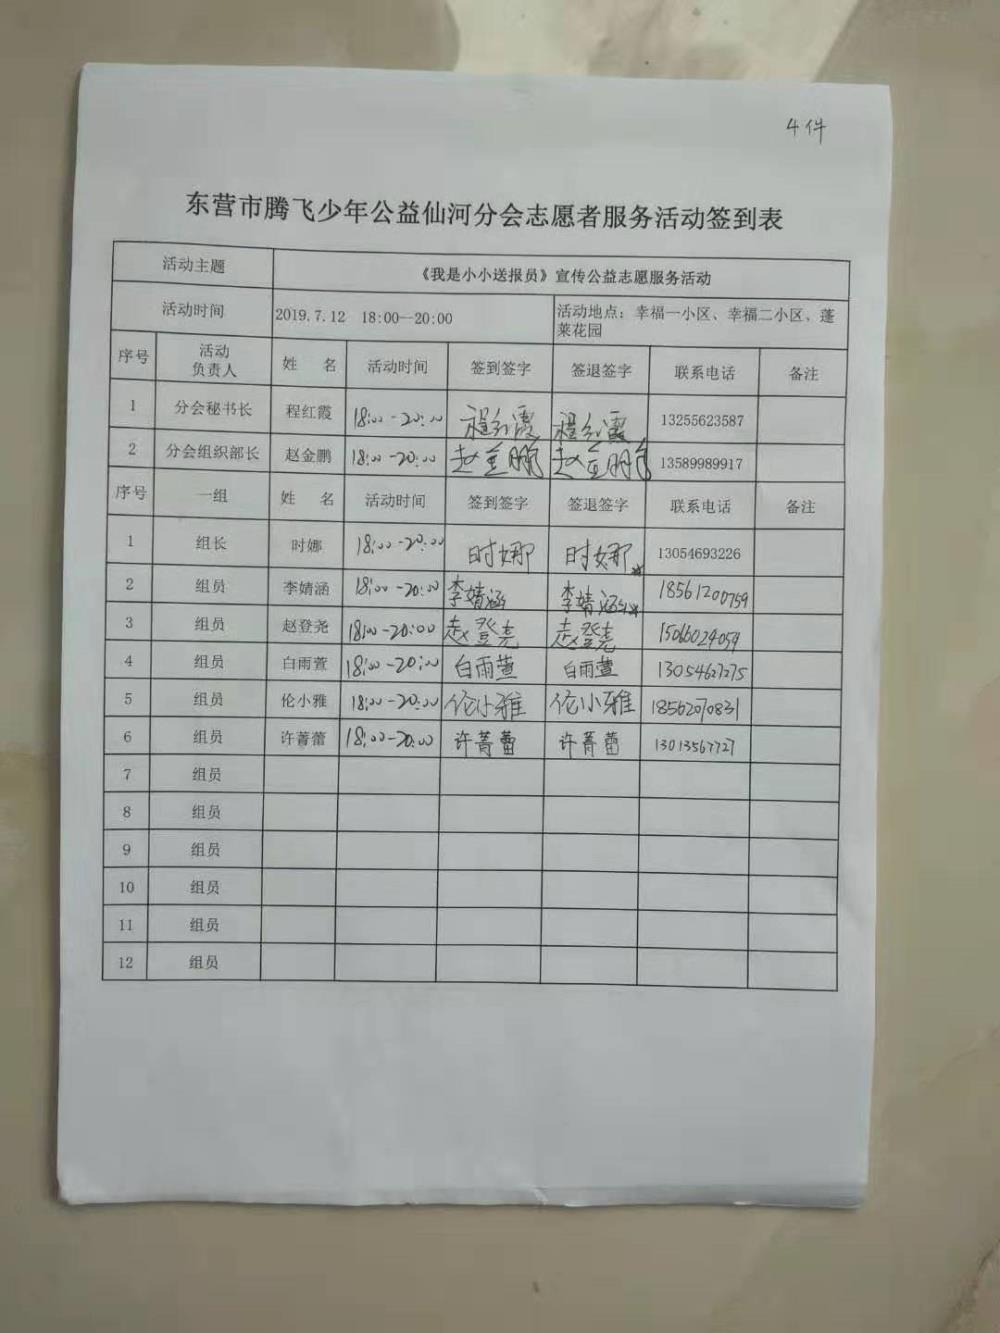 4件
东营市腾飞少年公益仙河分会志愿者服务活动签到表
活动主题 《我是小小送报员》宣传公益志愿服务活动
活动时间 2019.7.12 18:00—20:00 活动地点：幸福一小区、幸福二小区、蓬莱花园
序号 活动负责人 姓 名 活动时间 签到签字 签退签字 联系电话 备注
1 分会秘书长 程红霞 18:00-20:00 程红霞 程红霞 13255623587
2 分会组织部长 赵金鹏 18:00-20:00 赵金鹏 赵金鹏 13589989917
序号 一组 姓 名 活动时间 签到签字 签退签字 联系电话 备注
1 组长 时娜 18:00-20:00 时娜 时娜 13054693226
2 组员 李婧涵 18:00-20:00 李婧涵 李婧涵 18561200759
3 组员 赵登尧 18:00-20:00 赵登尧 赵登尧
4 组员 白雨萱 18:00-20:00 白雨萱 白雨萱 13054627275
5 组员 伦小雅 18:00-20:00 伦小雅 伦小雅 18562070831
6 组员 许菁蕾 18:00-20:00 许菁蕾 许菁蕾 13013567727
7 组员
8 组员
9 组员
10 组员
11 组员
12 组员